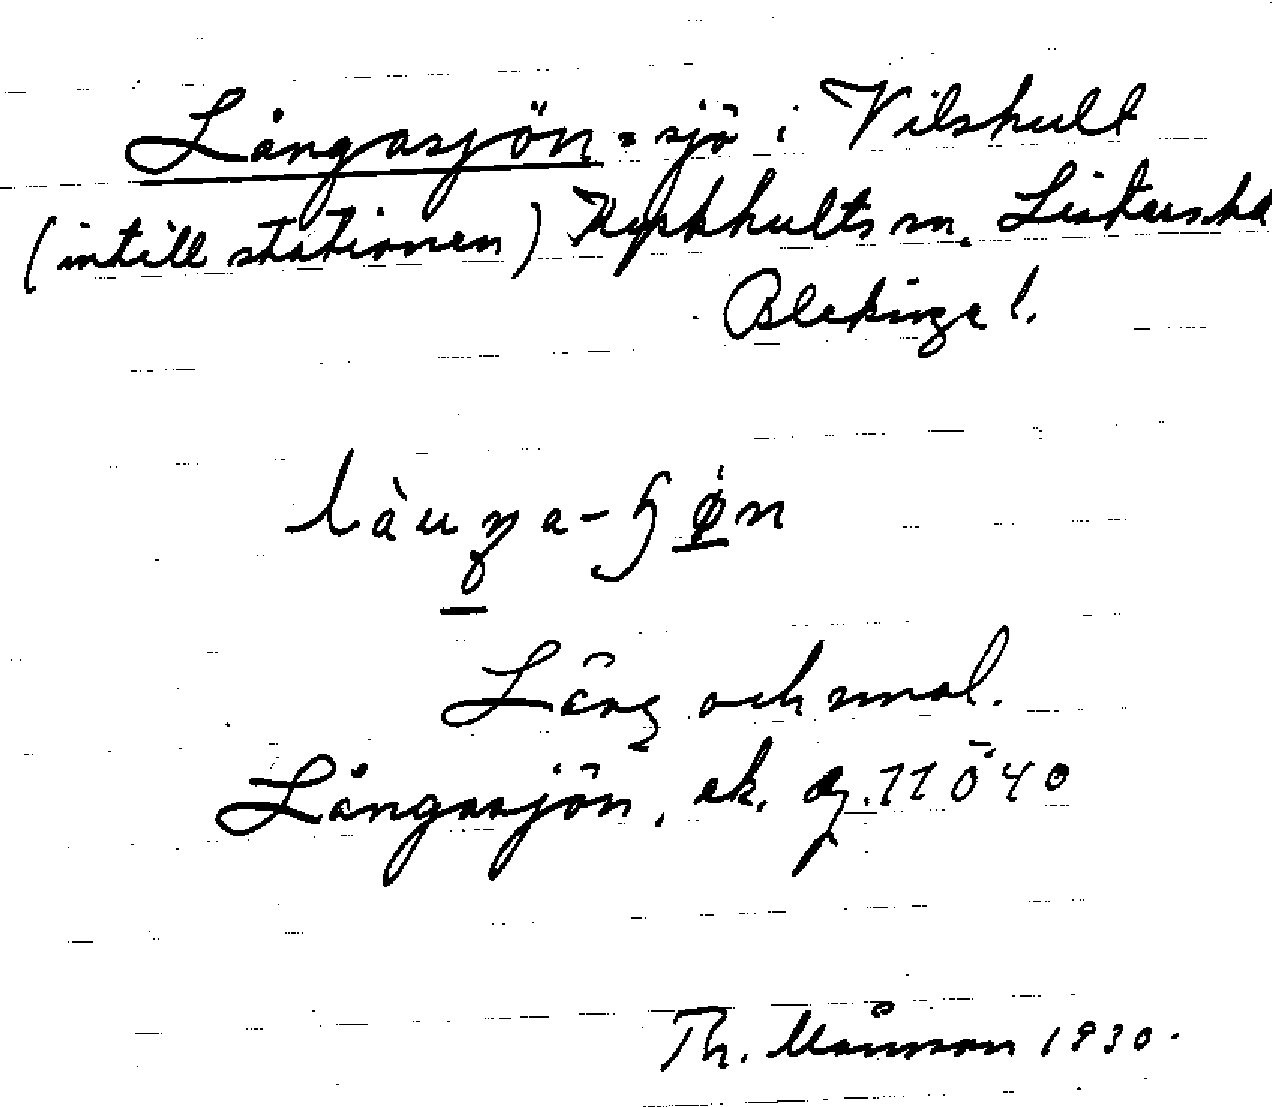 Långasjön = sjö i Vilshult
(intill stationen) Kyrkhults sn. Listers hd
Blekinge l.
làuŋa-ʃø̀n
Lång och smal.
Långasjön, ek.
Th. Månsson 1930.